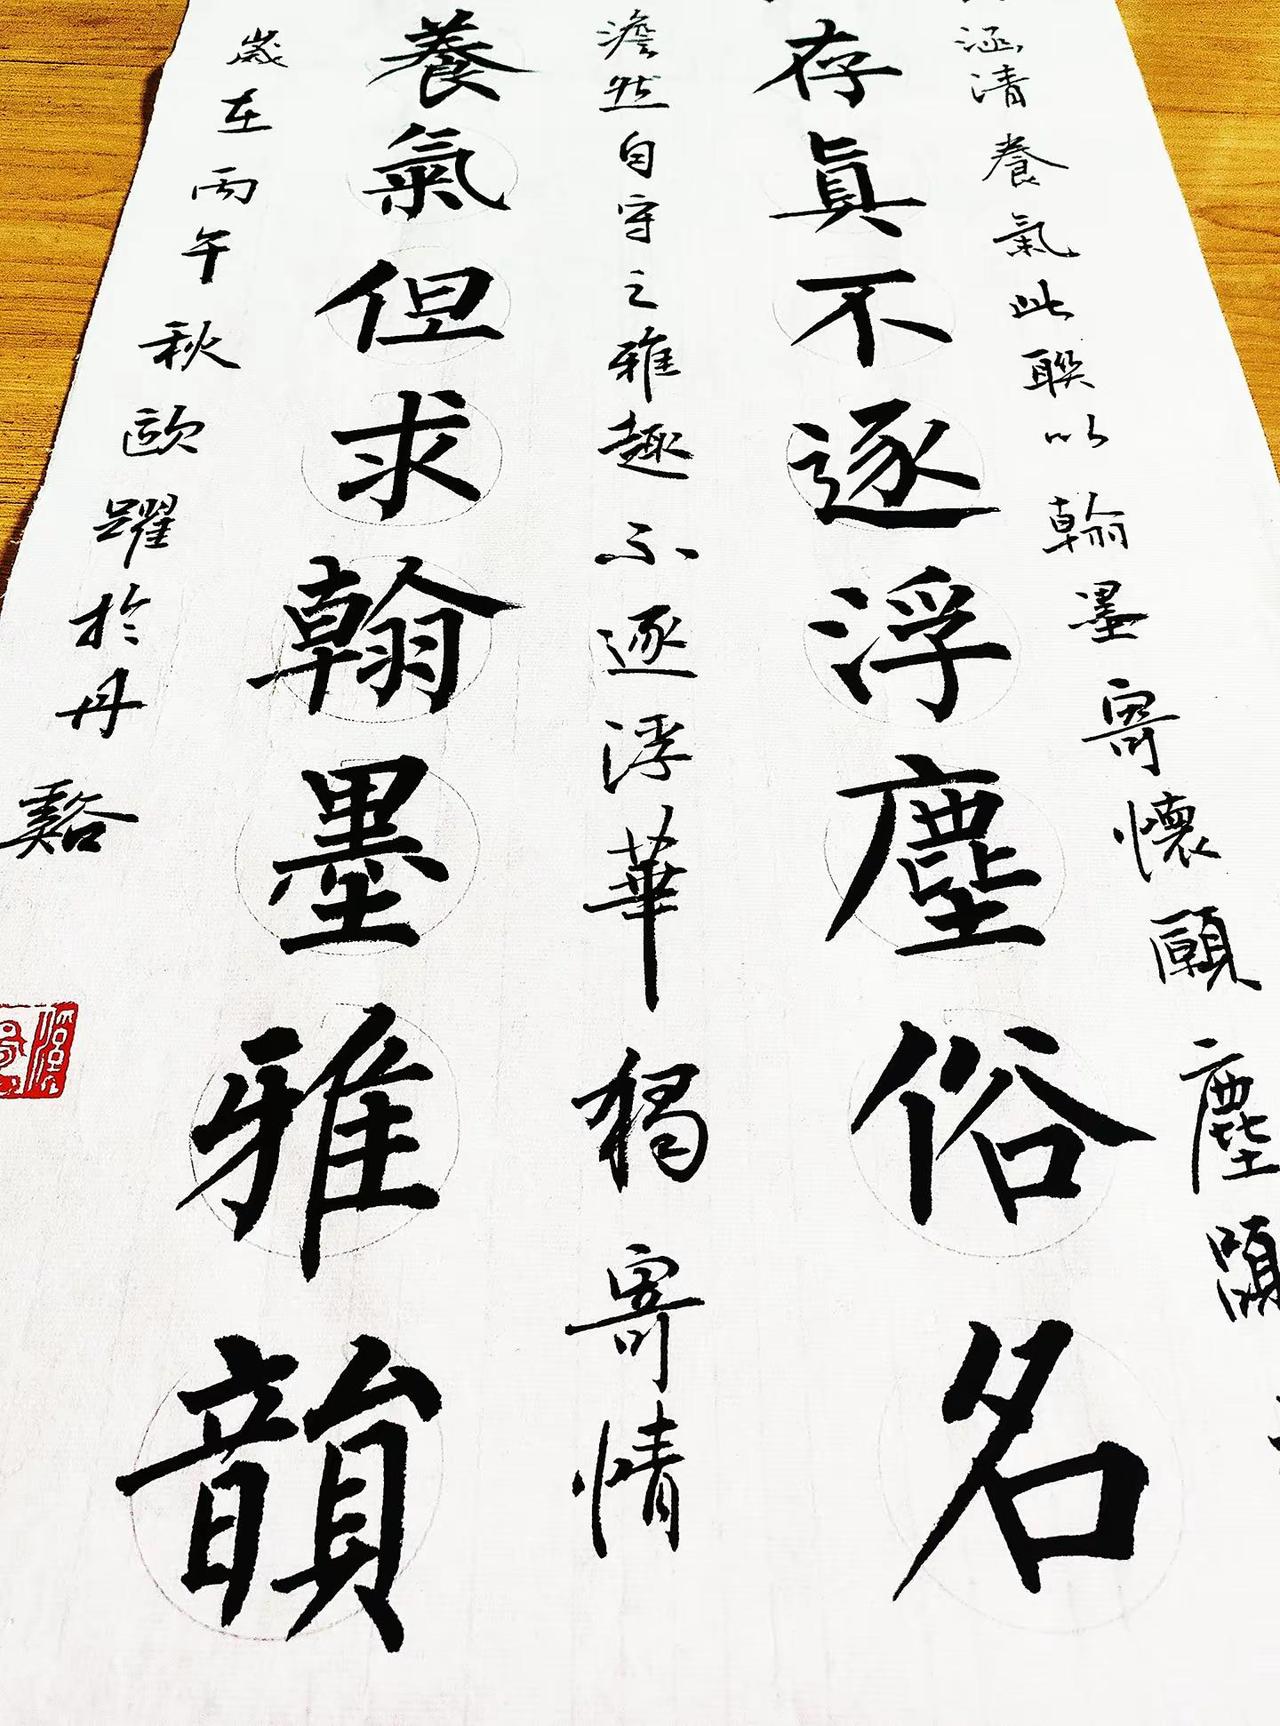 涵清養氣此聯以翰墨寄懷願塵
存眞不逐浮塵俗名
澹然自守之雅趣不逐浮華獨寄情
養氣但求翰墨雅韻
歲在丙午秋歐躍於丹谿